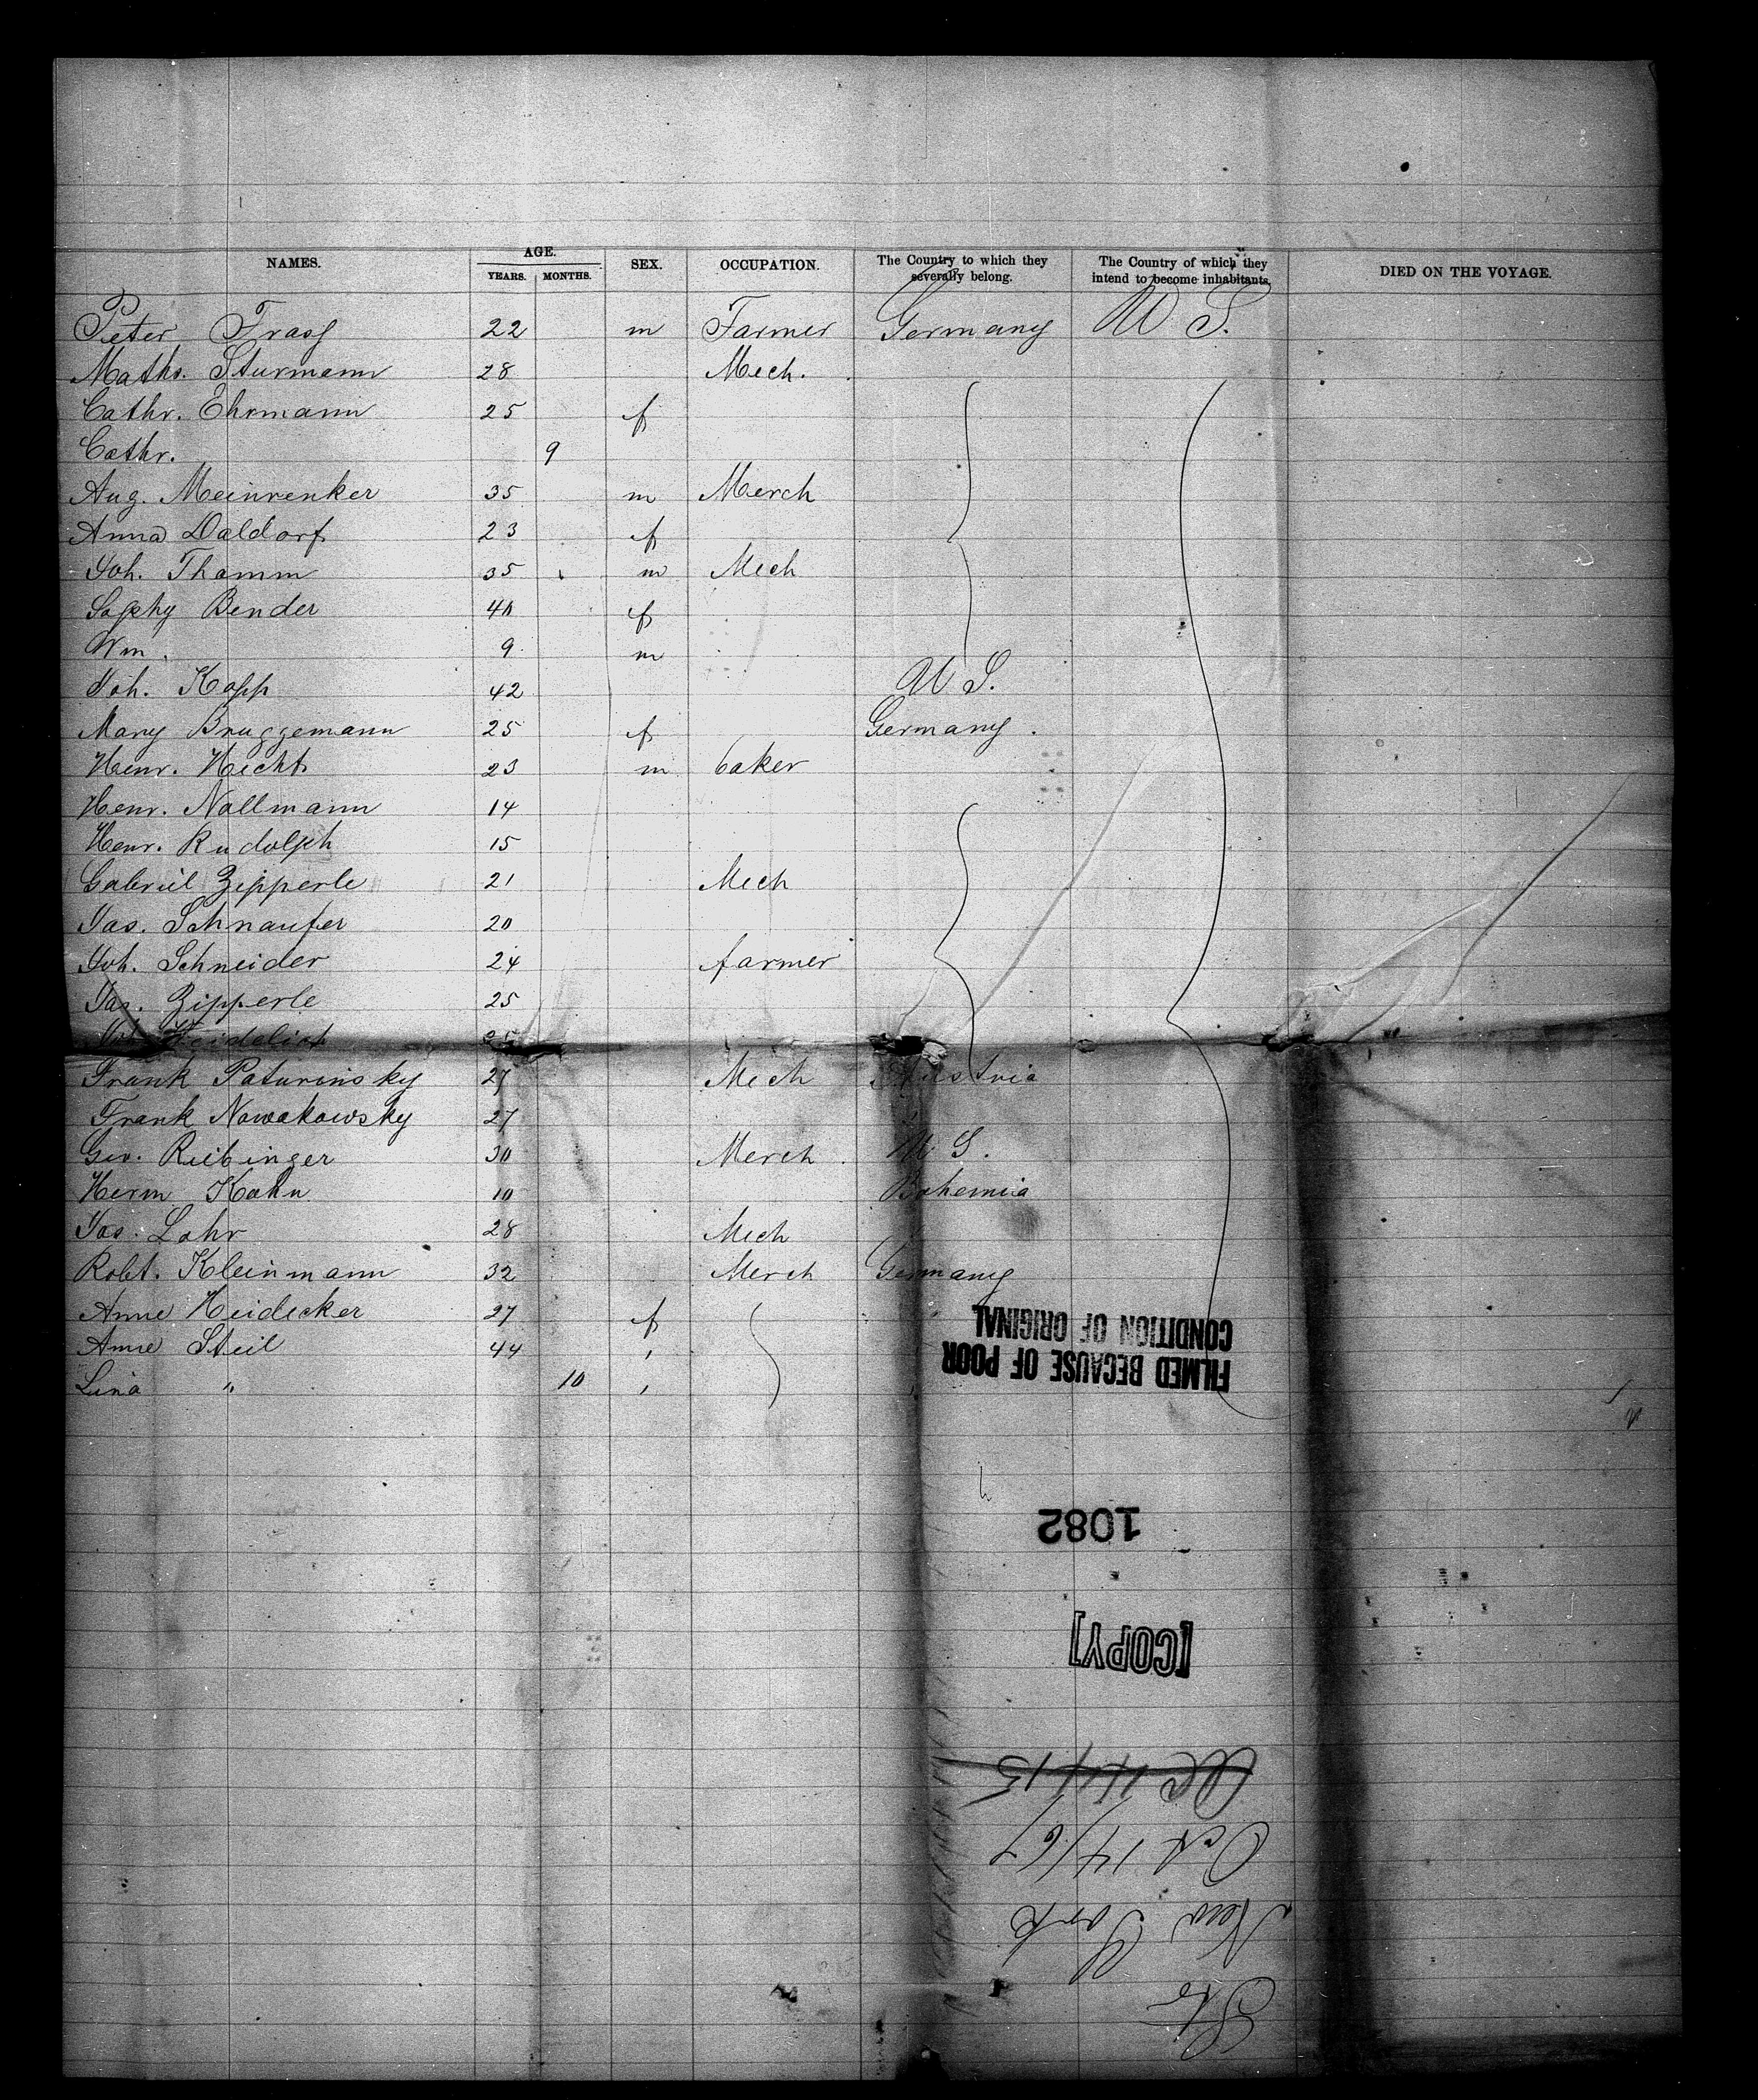 NAMES. AGE. YEARS. MONTHS. SEX. OCCUPATION. The Country to which they severally belong. The Country of which they intend to become inhabitants. DIED ON THE VOYAGE.
Peter 22 m Farmer Germany U S.
Maths. Sturmann 28 Mech.
Cathr. Ehrmann 25 f
Cathr. 9
Aug. Meinrenker 35 m Merch
Anna Daldorf 23 f
Joh. Thamm 35 m Mech
Sophy Bender 40 f
Wm. 9 m
Joh. Kapp 42 U S.
Mary Bruggemann 25 f Germany.
Henr. Hecht 23 m baker
Henr. Nallmann 14
Henr. Rudolph 15
Gabriel Zipperle 21 Mech
Jas. Schnaufer 20
Joh. Schneider 24 farmer
Jas. Zipperle 25
Frank Paturinsky 27 Mech Austria
Frank Nowakowsky 27 "
Geo. Reibinger 30 Merch. U. S.
Herm Kahn 10 Bohemia
Jos. Lohr 28 Mech
Robt. Kleinmann 32 Merch Germany
Anne Heidecker 27 f "
Anne Steil 44 "
Lina " 10 "
FILMED BECAUSE OF POOR
CONDITION OF ORIGINAL
1082
[COPY]
Oct 14/67
New York